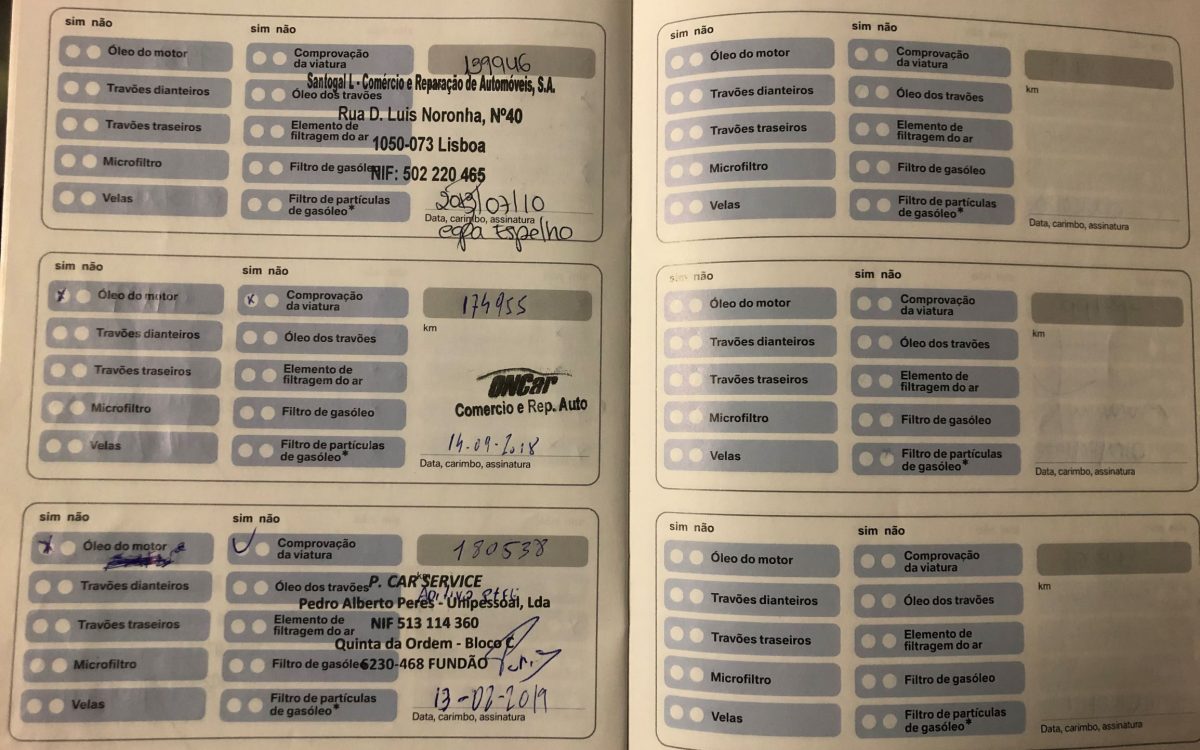 sim não
sim não
Óleo do motor
Comprovação
da viatura
139946
Santogal L - Comércio e Reparação de Automóveis, S.A.
Travões dianteiros
Óleo dos travões
Rua D. Luis Noronha, Nº40
Travões traseiros
Elemento de
filtragem do ar
1050-073 Lisboa
Microfiltro
Filtro de gasóleo
NIF: 502 220 465
Velas
Filtro de partículas
de gasóleo*
/07/10
Data, carimbo, assinatura
Espelho
sim não
sim não
x Óleo do motor
x Comprovação
da viatura
174955
km
Travões dianteiros
Óleo dos travões
Travões traseiros
Elemento de
filtragem do ar
ONCar
Comercio e Rep. Auto
Microfiltro
Filtro de gasóleo
Velas
Filtro de partículas
de gasóleo*
14-09-2018
Data, carimbo, assinatura
sim não
sim não
x Óleo do motor
Comprovação
da viatura
180538
km
Travões dianteiros
Óleo dos travões
P. CAR SERVICE
Pedro Alberto Peres - Unipessoal, Lda
Travões traseiros
Elemento de
filtragem do ar
NIF 513 114 360
Quinta da Ordem - Bloco C
Microfiltro
Filtro de gasóleo
6230-468 FUNDÃO
Velas
Filtro de partículas
de gasóleo*
13-02-2019
Data, carimbo, assinatura
sim não
sim não
Óleo do motor
Comprovação
da viatura
km
Travões dianteiros
Óleo dos travões
Travões traseiros
Elemento de
filtragem do ar
Microfiltro
Filtro de gasóleo
Velas
Filtro de partículas
de gasóleo*
Data, carimbo, assinatura
sim não
sim não
Óleo do motor
Comprovação
da viatura
km
Travões dianteiros
Óleo dos travões
Travões traseiros
Elemento de
filtragem do ar
Microfiltro
Filtro de gasóleo
Velas
Filtro de partículas
de gasóleo*
Data, carimbo, assinatura
sim não
sim não
Óleo do motor
Comprovação
da viatura
km
Travões dianteiros
Óleo dos travões
Travões traseiros
Elemento de
filtragem do ar
Microfiltro
Filtro de gasóleo
Velas
Filtro de partículas
de gasóleo*
Data, carimbo, assinatura